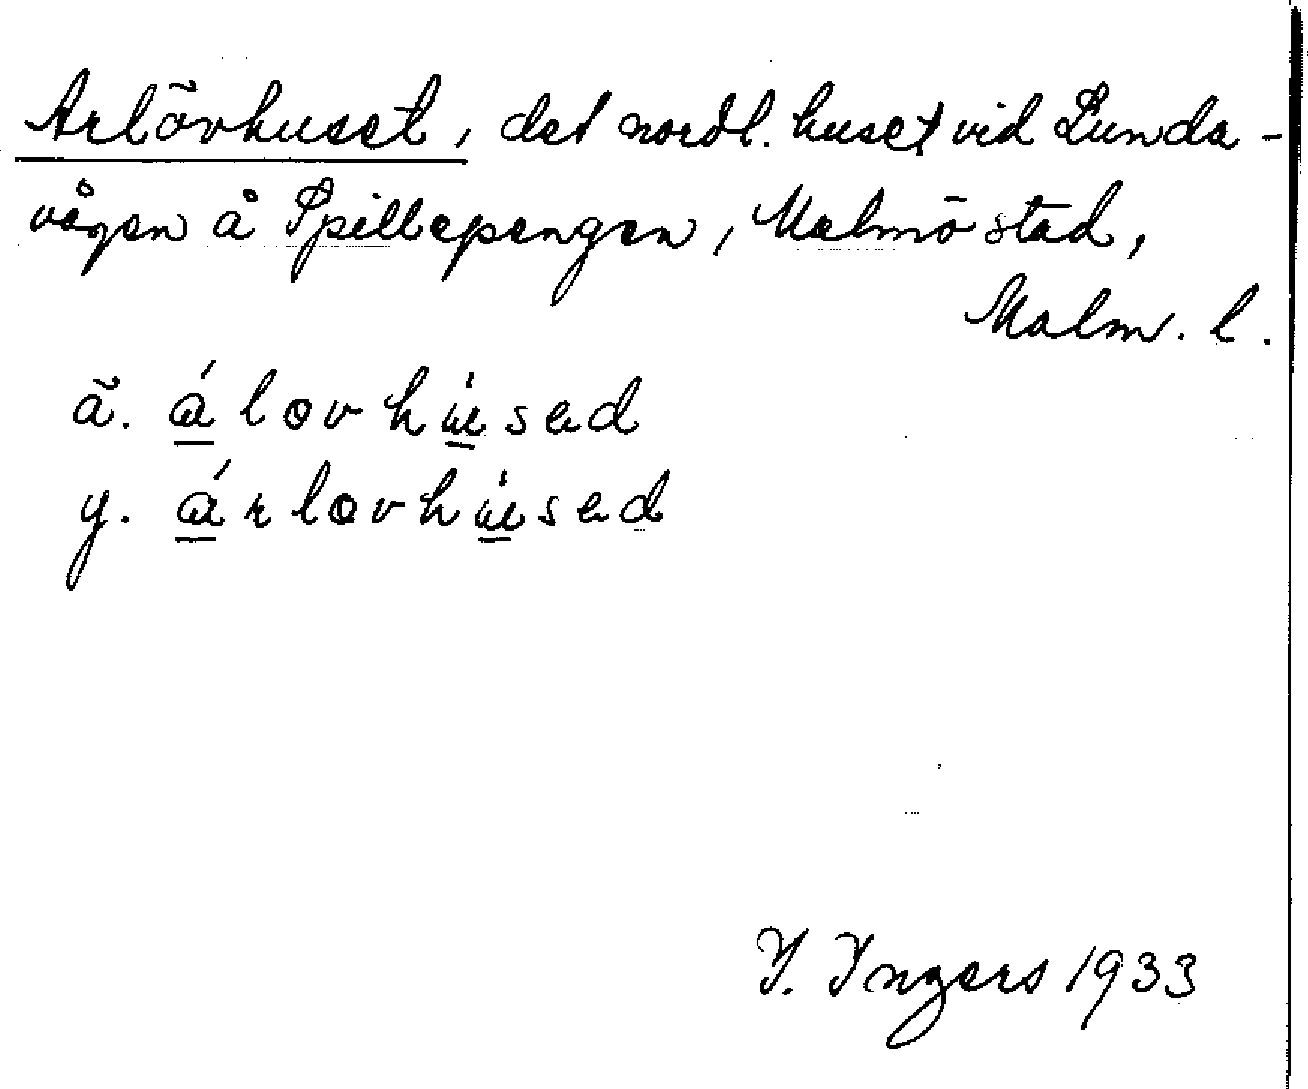 Arlövhuset, det nordl. huset vid Lunda-
vägen å Spillepengen, Malmö stad,
Malm. l.
ä. á̱lovhu̱̍sed
y. á̱rlovhu̱̍sed
I. Ingers 1933